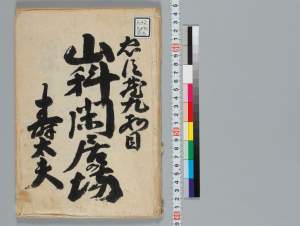 忠臣蔵九ツ目
山科閑居の場
十寿太夫